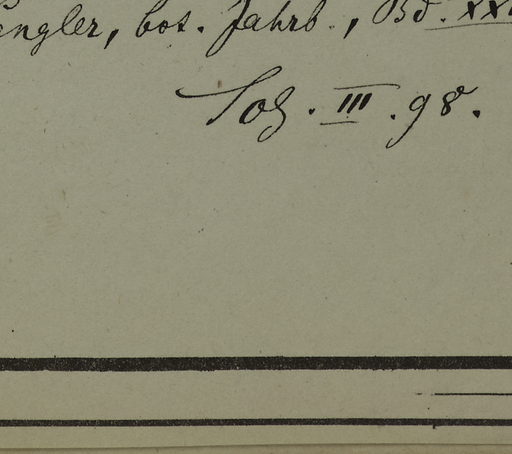 engler, bot. Jahrb., Bd. XX
III. 98.